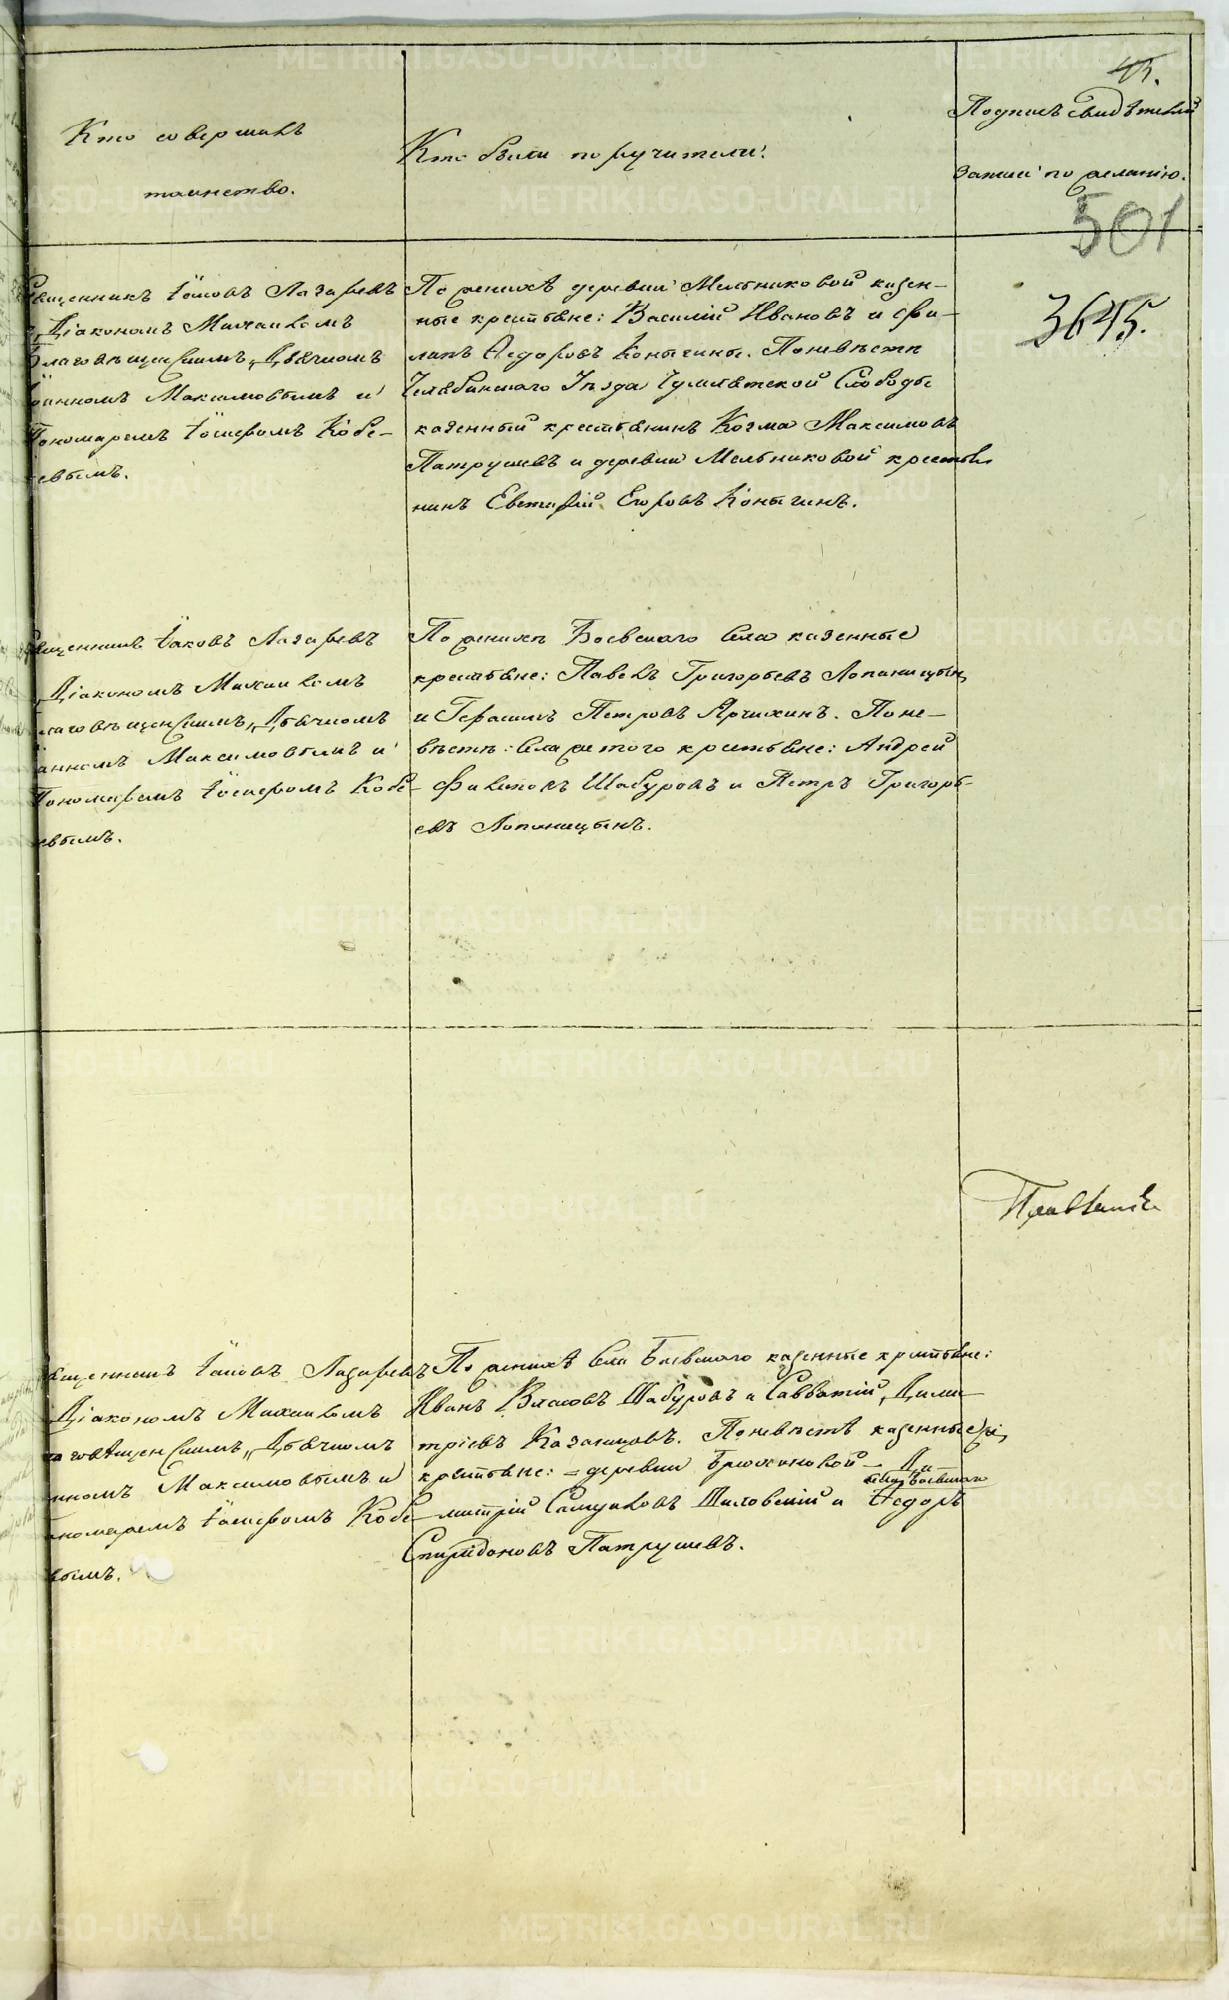 45.
Кто совершалъ
таинство.
Кто были поручители.
Подпись свидѣтелей
записи по желанію.
501
3645.
Священникъ Іаковъ Лазаревъ
съ Діакономъ Михаиломъ
Благовѣщенскимъ, Дьячкомъ
Іоанномъ Максимовымъ и
Пономаремъ Іосифомъ Кобе-
левымъ.
По женихѣ деревни Мельниковой казен-
ные крестьяне: Василій Ивановъ и Фи-
лапъ Ѳедоровъ Контѣины. По невѣстѣ
Челябинскаго Уѣзда Чумлятской Слободы
казенный крестьянинъ Козма Максимовъ
Патрушевъ и деревни Мельниковой крестья
нинъ Евстафій Егоровъ
Священникъ Іаковъ Лазаревъ
Діакономъ Михаиломъ
лаговѣщенскимъ, Дьячкомъ
анномъ Максимовымъ и
Пономаремъ Іосифомъ Кобе-
евымъ.
По женихѣ Боевскаго села казенные
крестьяне: Павелъ Григорьевъ Лопаницынъ
и Герасимъ Петровъ Ячихинъ. По не-
вѣстѣ: села этого крестьяне: Андрей
Шабуровъ и Петръ Григорь-
евъ Лопаницынъ.
вященникъ Іаковъ Лазаревъ
Діакономъ Михаиломъ
говѣщенскимъ, Дьячкомъ
нномъ Максимовымъ и
ономаремъ Іосифомъ Кобе-
вымъ.
По женихѣ села Боевскаго казенные крестьяне:
Иванъ Власовъ Шабуровъ и Савватій Дими-
тріевъ Казанцовъ. По невѣстѣ казенные
крестьяне: деревни Брюхановой Ди-
села Боевскаго
митрій Самуиловъ Шиловскій и Ѳедоръ
Спиридоновъ Патрушевъ.